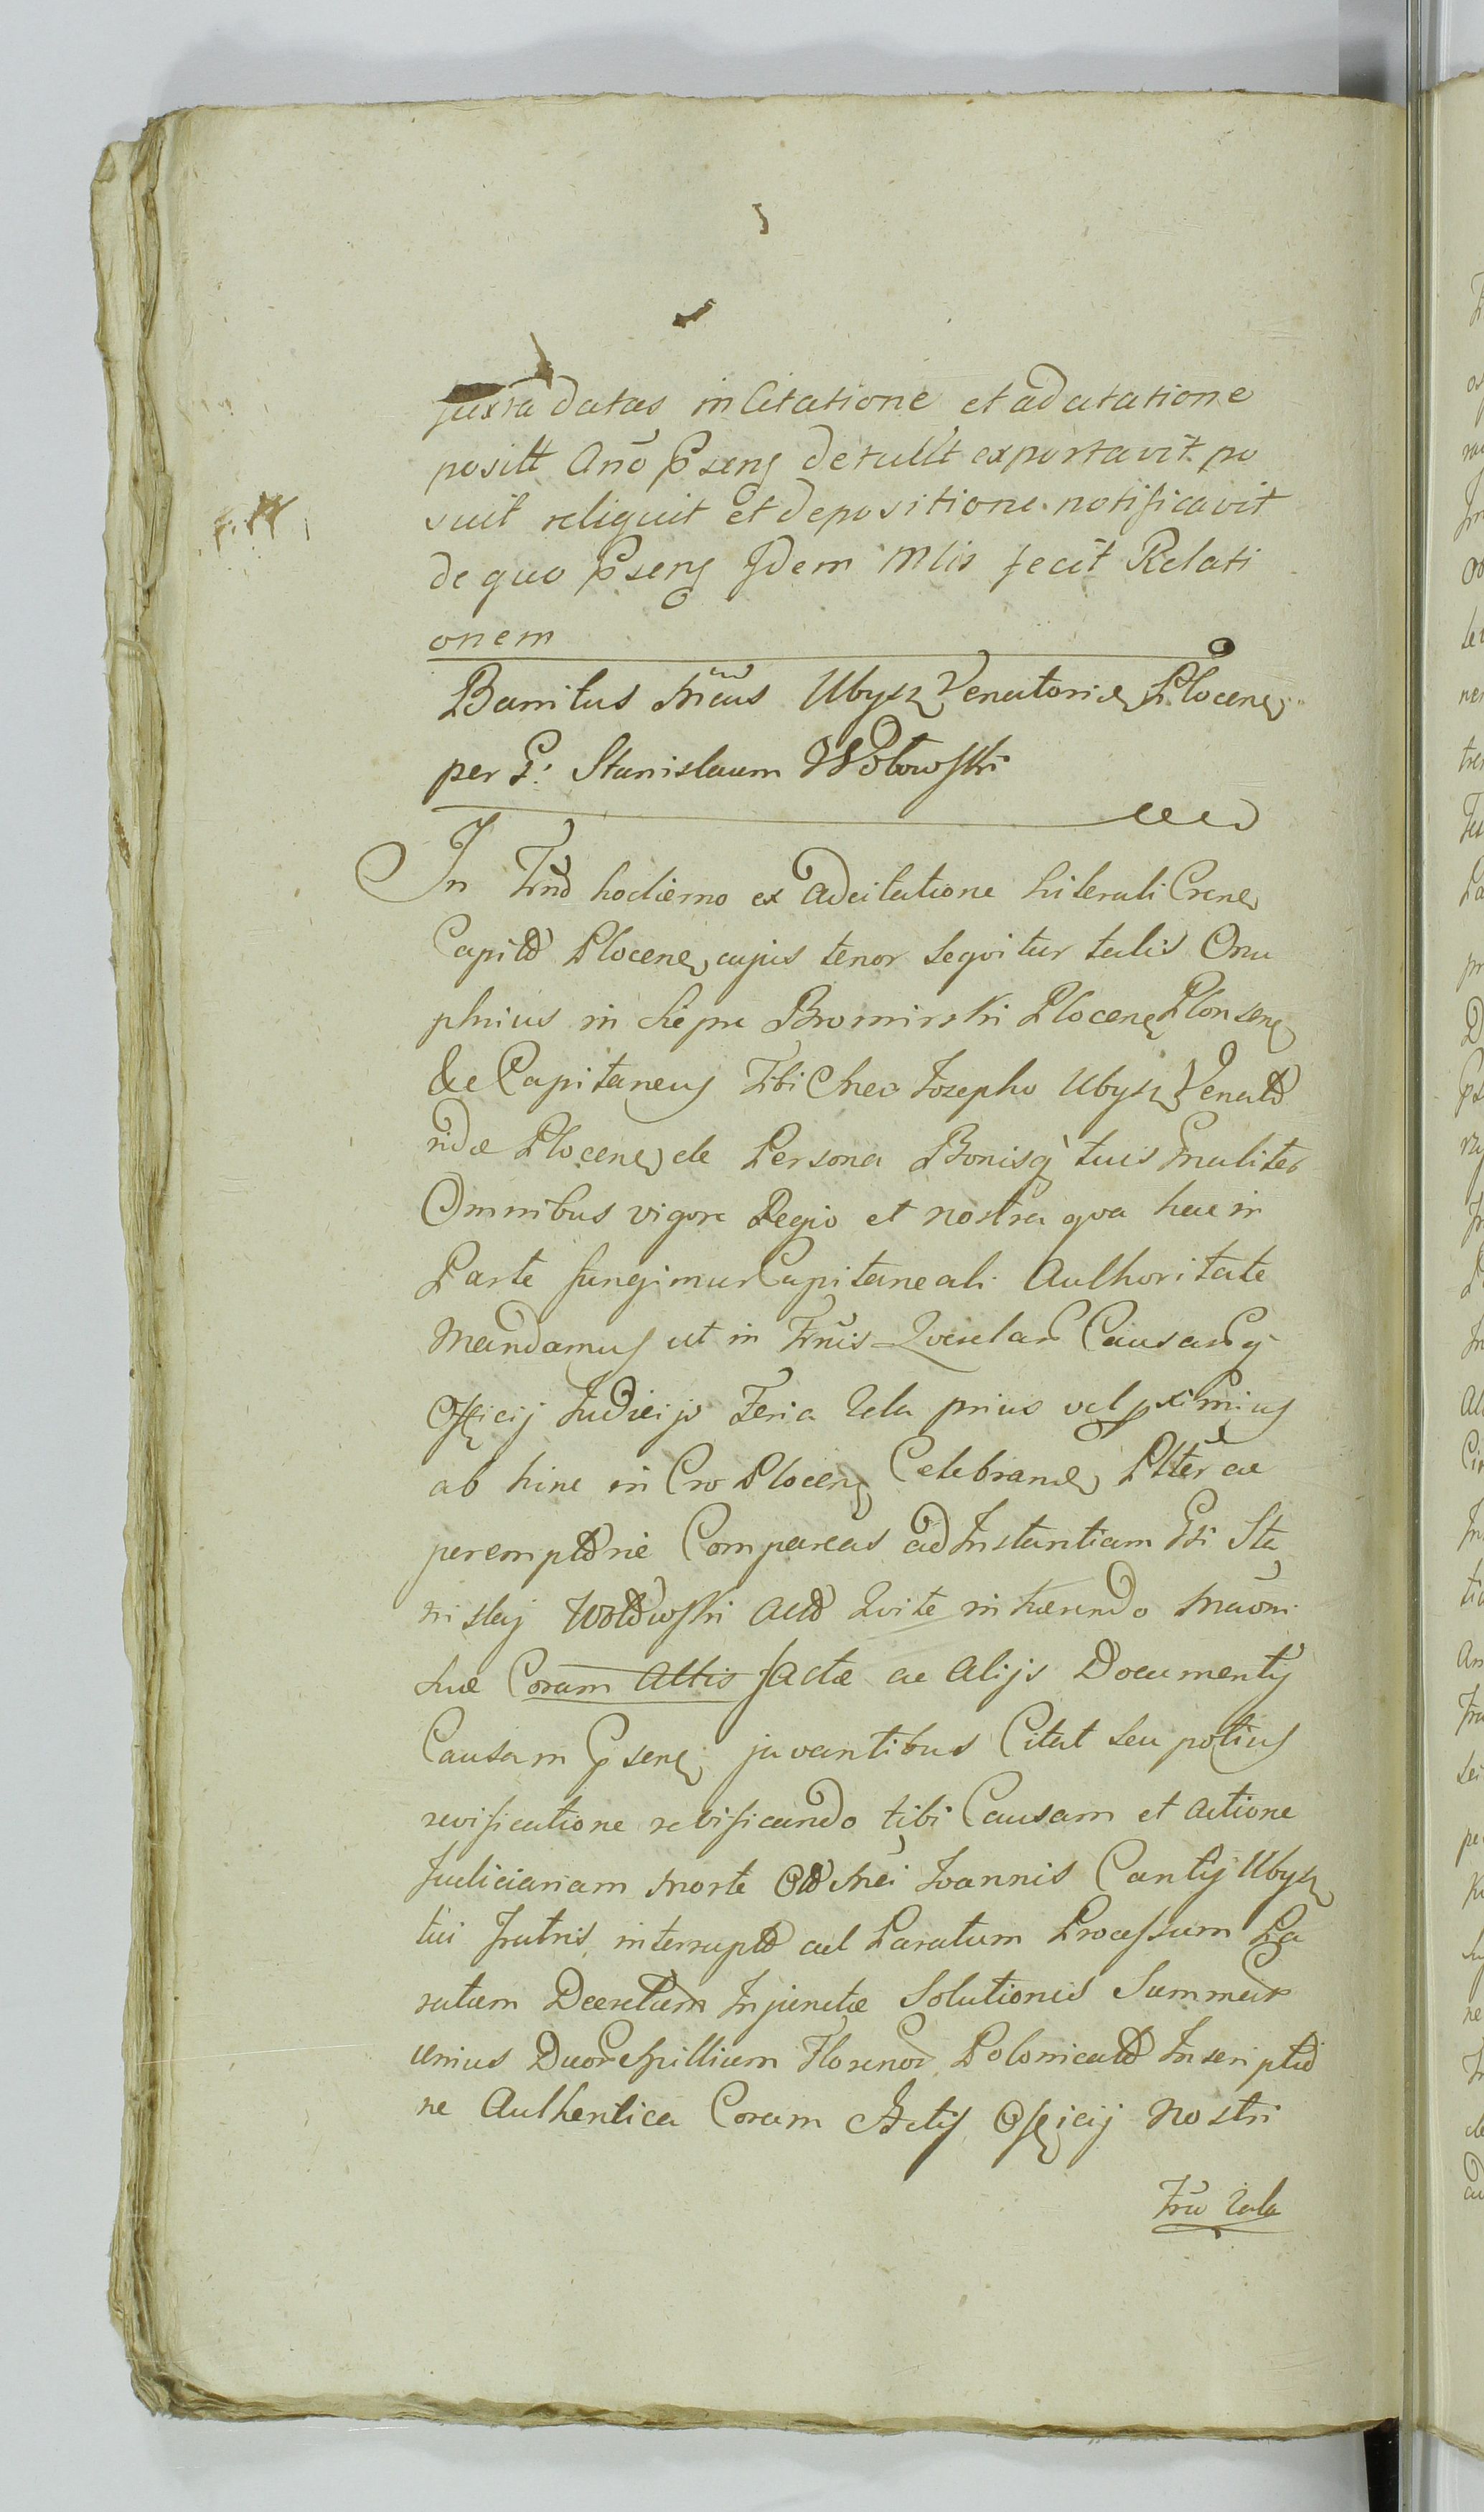 juxta datas in Citatione et adcitatione
positt Anō p̃sens detulit exportavit po
suit reliquit et depositione notificavit
de quo p̃sens Idem Mlis fecit Relati
onem
Banitus Mcus Ubysz Venatorides Plocens
per G: Stanislaum Wołowski
In Trno hodierno ex Adcitatione Literali Crens
Capitō Plocens cujus tenor sequitur talis Onu
phrius in Siepra Bromirski Plocens Plonsens
&c Capitaneus Tibi Mco Iozepho Ubysz Venatō
ridæ Plocens de Persona Bonisq tuis Gnaliter
Omnibus vigore Regio et nostra qva hac in
Parte fungimur Capitaneali Authoritate
Mandamus ut in Trnis Qverelar Causarq
Officij Judicijs Feria 2da prius vel pximius
ab hinc in Cro Plocens Celebrand Pltēr ac
peremptōrie Compareas ad Instantiam Gsi Sta
nislaj Wołowski Actō Qvite inhærendo
suæ Coram Attis factæ ac Alijs Documentis
Causam p̃sens juvantibus Citat seu potius
revificatione revificando tibi Causam et Actione
Judiciariam morte Mci Joannis Cantij Ubysz
tui Fratris, interruptō ad Paratum Processum Pa
ratum Decretum Injunctæ Solutionis Summar
unius Duor Millium Florenor Polonicalō Inscriptiō
ne Authentica Coram Actis Officij Nostri